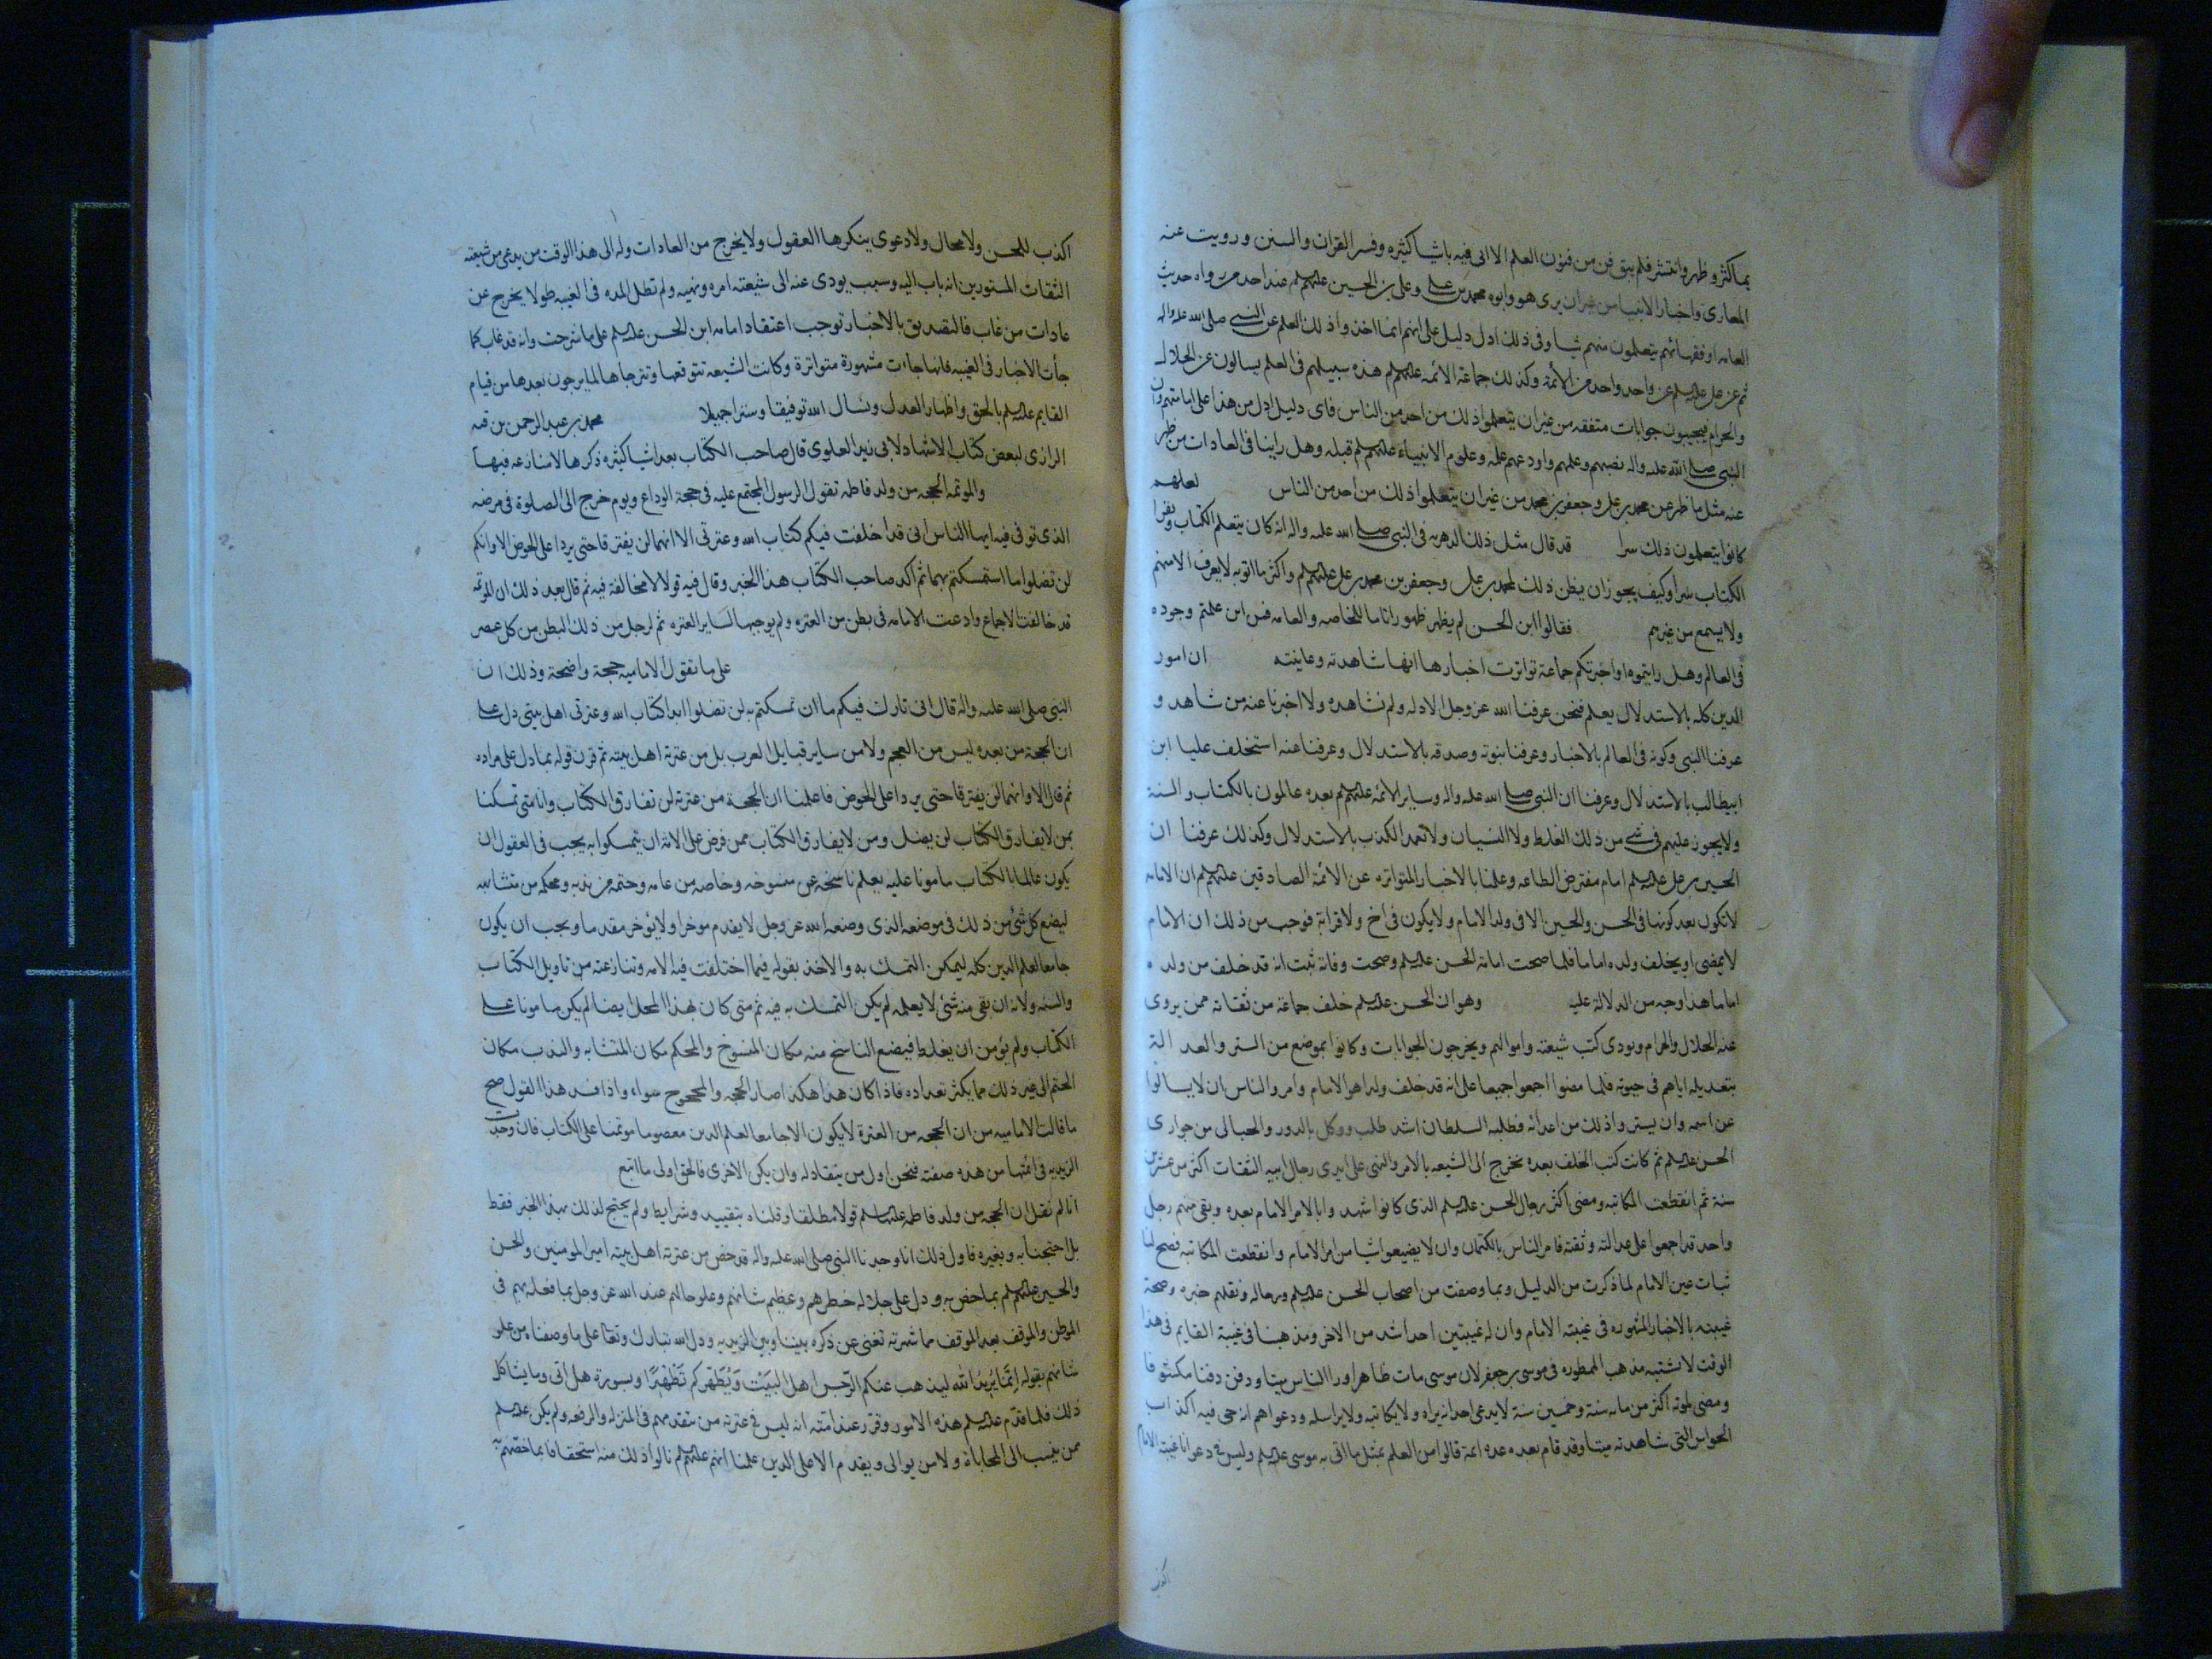 بما كثر وظهر وانتشر فلم يبق فن من فنون العلم الا اتى فيه باشيا كثيره وفسر القران والسنن ورويت عنه
المغازى واخبار الانبيا من غير ان يرى هو وابوه محمد بن على وعلى بن الحسين عليهم عند احد من رواه حديث
العامه او فقهائهم يتعلمون منهم شيا وفى ذلك ادل دليل على انهم انما اخذوا ذلك العلم عن النبى صلى الله عليه واله
ثم عن على عليه السلم عن واحد واحد من الائمة وكذلك جماعة الائمه عليهم هذه سبيلهم فى العلم يسالون عن الحلال
والحرام فيجيبون جوابات متفقه من غير ان يتعلموا ذلك من احد من الناس فاى دليل ادل من هذا على امامتهم وان
النبى صلى الله عليه واله نصبهم وعلمهم واودعهم علمه وعلوم الانبياء عليهم قبله وهل راينا فى العادات من ظهر
عنه مثل ما ظهر عن محمد بن على وجعفر بن محمد من غير ان يتعلموا ذلك من احد من الناس لعلهم
كانوا يتعلمون ذلك سرا قد قال مثل ذلك الدهريه فى النبى صلى الله عليه واله انه كان يتعلم الكتاب ويقرا
الكتاب سرا وكيف يجوز ان يظن ذلك لمحمد بن على وجعفر بن محمد بن على عليهم واكثر ما اتوا به لا يعرف الا منهم
ولا يسمع من غيرهم فقالوا ابن الحسن لم يظهر ظهورا تاما للخاصه والعامه فمن اين علمتم وجوده
فى العالم وهل رايتموه او اخبرتكم جماعة تواترت اخبارها انها شاهدته وعاينته ان امور
الدين كله بالاستدلال يعلم فنحن عرفنا الله عز وجل بالادله ولم نشاهده ولا اخبرنا عنه من شاهد و
عرفنا النبى وكونه فى العالم بالاخبار وعرفنا نبوته وصدقه بالاستدلال وعرفنا عنه استخلف عليا ابن
ابيطالب بالاستدلال وعرفنا ان النبى صلى الله عليه واله وساير الائمة عليهم بعده عالمون بالكتاب والسنة
ولا يجوز عليهم فى شى من ذلك الغلط ولا النسيان ولا تعمد الكذب بالاستدلال وكذلك عرفنا ان
الحسن بن على عليه السلم امام مفترض الطاعه وعلمنا بالاخبار المتواتره عن الائمة الصادقين عليهم ان الامامه
لا تكون بعد كونها فى الحسن والحسين الا فى ولد الامام ولا يكون فى اخ ولا قرابة فوجب من ذلك ان الامام
لا يمضى او يخلف ولده اماما فلما صحت امامة الحسن عليه السلم وصحت وفاته ثبت انه قد خلف من ولده
اماما هذا وجه من الدلالة عليه وهو ان الحسن عليه السلم خلف جماعة من ثقاته ممن يروى
عنه الحلال والحرام ويودى كتب شيعته واموالهم ويخرجون الجوابات وكانوا بموضع من الستر والعدالة
بتعديله اياهم فى حيوته فلما مضوا اجمعوا جميعا على انه قد خلف ولدا هو الامام وامروا الناس ان لا يسالوا
عن اسمه وان يستروا ذلك من اعدائه وطلبه السلطان اشد طلب ووكل بالدور والحبالى من جوارى
الحسن عليه السلم ثم كانت كتب الخلف بعده تخرج الى الشيعه بالامر والنهى على ايدى رجال ابيه الثقات اكثر من عشرين
سنة ثم انقطعت المكاتبه ومضى اكثر رجال الحسن عليه السلم الذى كانوا شهدوا بالامر الامام بعده وبقى منهم رجل
واحد قد اجمعوا على عدالته وثقته فامر الناس بالكتمان وان لا يضيعوا شيا من امر الامام وانقطعت المكاتبه فصح لنا
ثبات عين الامام لما ذكرت من الدليل وبما وصفت من اصحاب الحسن عليه السلم ورجاله ونقلهم خبره وصحة
غيبته بالاخبار المشهوره فى غيبته الامام وان له غيبتين احدا شد من الاخر ومذهبنا فى غيبة القايم فى هذا
الوقت لا يشتبه مذهب الممطوره فى موسى بن جعفر لان موسى مات ظاهرا وراه الناس ميتا ودفن دفنا مكشوفا
ومضى لموته اكثر من مائه سنة وخمسين سنة لا يدعى احد انه يراه ولا يكاتبه ولا يراسله ودعواهم انه حى فيه اكذاب
الحواس التى شاهدته ميتا وقد قام بعده عده ائمة قالوا من العلم بمثل ما اتى به موسى عليه السلم وليس فى دعوانا غيبة الامام
اكذب
اكذب للحسن ولا محال ولا دعوى ينكرها العقول ولا يخرج من العادات وله الى هذا الوقت من يدعى من شيعته
الثقات المستورين انه باب اليه وسبب يودى عنه الى شيعته امره ونهيه ولم تطل المده فى الغيبه طولا يخرج عن
عادات من غاب فالتصديق بالاخبار توجب اعتقاد امامه ابن الحسن عليه السلم على ما شرحت وانه قد غاب كما
جأت الاخبار فى الغيبه فانها جاءت مشهورة متواترة وكانت الشيعه تتوقعها وتترجاها لما يرجون بعدها من قيام
القايم عليه السلم بالحق واظهار العدل ونسال الله توفيقا وسترا جميلا محمد بن عبد الرحمن بن قبه
الرازى لبعض كتاب الاشهاد لابى زيد العلوى قال صاحب الكتاب بعد اشيا كثيره ذكرها لا منازعه فيها
والموتمه الحجه من ولد فاطمه تقول الرسول المجتمع عليه فى حجة الوداع ويوم خرج الى الصلوة فى مرضه
الذى توفى فيه ايها الناس انى قد خلفت فيكم كتاب الله وعترتى الا انهما لن يفترقا حتى يردا على الحوض الا وانكم
لن تضلوا ما استمسكتم بهما ثم اكد صاحب الكتاب هذا الخبر وقال فيه قولا لا مخالفة فيه ثم قال بعد ذلك ان الموتمه
قد خالفت الاجماع وادعت الامامه فى بطن من العتره ولم يوجبها لساير العتره ثم لرجل من ذلك البطن من كل عصر
على ما تقول الاماميه حجة واضحة وذلك ان
النبى صلى الله عليه واله قال انى تارك فيكم ما ان تمسكتم به لن تضلوا ابدا كتاب الله وعترتى اهل بيتى دل على
ان الحجة من بعده ليس من العجم ولا من ساير قبايل العرب بل من عترة اهل بيته ثم قرن قوله بما دل على مراده
ثم قال الا وانهما لن يفترقا حتى يردا على الحوض فاعلمنا ان الحجة من عترته لن تفارق الكتاب وانا متى تمسكنا
بمن لا يفارق الكتاب لن يضل ومن لا يفارق الكتاب ممن فرض على الامة ان يتمسكوا به يجب فى العقول ان
يكون عالما بالكتاب مامونا عليه يعلم ناسخه من منسوخه وخاصه من عامه وحتمه من ندبه ومحكمه من متشابهه
ليضع كل شئ من ذلك فى موضعه الذى وضعه الله عز وجل لا يقدم موخرا ولا يؤخر مقدما ويجب ان يكون
جامعا لعلم الدين كله ليمكن التمسك به والاخذ بقوله فيما اختلفت فيه الامه وتنازعته من تاويل الكتاب
والسنه ولانه ان بقى منه شئ لا يعلمه لم يكن التمسك به فيه ثم متى كان بهذا المحل ايضا لم يكن مامونا على
الكتاب ولم يؤمن ان يغلط فيضع الناسخ منه مكان المنسوخ والمحكم مكان المتشابه والندب مكان
الحتم الى غير ذلك مما يكثر تعداده فاذا كان هذا هكذا صار الحجه والمحجوج سواء واذا فسد هذا القول صح
ما قالت الاماميه من ان الحجه من العترة لا يكون الا جامعا لعلم الدين معصوما موتمنا على الكتاب فان وجدت
الزيديه فى ائمتها من هذه صفته فنحن اول من ينقاد له وان يكن الاخرى فالحق اولى ما اتبع
انا لم نقل ان الحجه من ولد فاطمه عليها سلم قولا مطلقا وقلناه بتقييد وشرايط ولم يحتج لذلك بهذا الخبر فقط
بل احتججنا به وبغيره فاول ذلك انا وجدنا النبى صلى الله عليه واله قد خص من عترته اهل بيته امير المومنين والحسن
والحسين عليهم بما خص به ودل على جلاله خطرهم وعظيم شانهم وعلو حالهم عند الله عز وجل بما فعله بهم فى
الموطن والموقف بعد الموقف مما شهرته تغنى عن ذكره بيننا وبين الزيديه ودل الله تبارك وتعالى على ما وصفناه من علو
شانهم بقوله اِنَّمَا يُرِيدُ اللّٰه ليذهب عنكم الرِّجس اهل البَيتِ وَيُطَهِّركُم تَطْهِيْرًا وبسورة هل اتى وما يشاكل
ذلك فلما قدم عليه السلم هذه الامور وقرر عند امته انه ليس فى عترته من يتقدمهم فى المنزله والرفعه ولم يكن عليه السلم
ممن ينسب الى المحاباة ولا من يوالى ويقدم الا على الدين علمنا انهم عليهم نالوا ذلك منه استحقاقا بما خصهم به